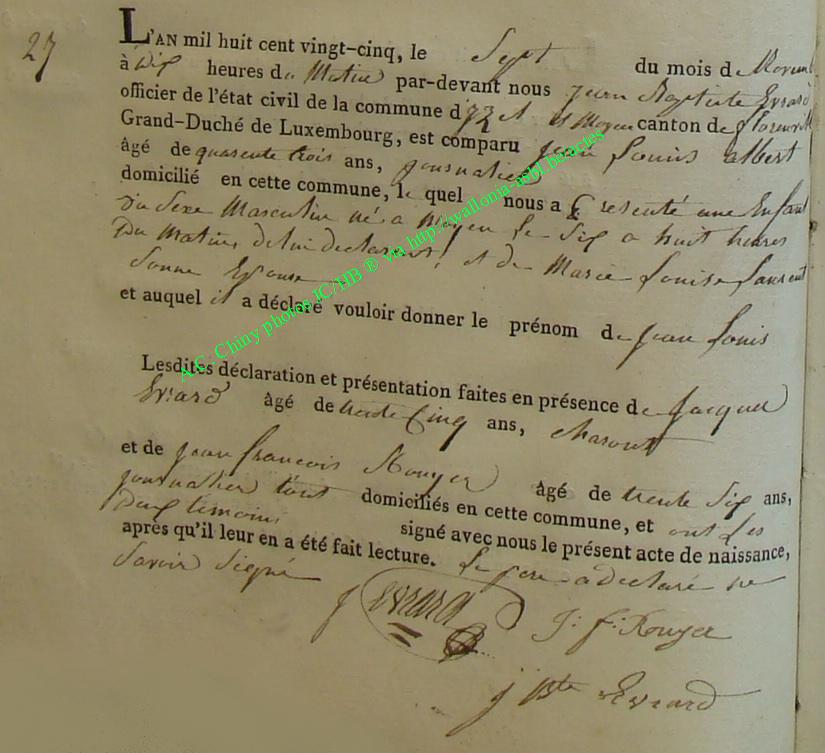 27
L'AN mil huit cent vingt-cinq, le Sept du mois de Novem
à dix heures du Matin par-devant nous jean Baptiste Evrard
officier de l'état civil de la commune d'jz et Moyen canton de florenville
Grand-Duché de Luxembourg, est comparu jean Louis albert
âgé de quarente trois ans, journalier
domicilié en cette commune, le quel nous a présenté une Enfant
du Sexe Masculin né a Moyen le Six a huit heures
Du Matin, de lui declarant, et de Marie Louise Laurent
Sonne Epouse
et auquel il a déclaré vouloir donner le prénom de jean Louis
Lesdites déclaration et présentation faites en présence de Jacques
Evrard âgé de trente Cinq ans, charont
et de jean françois Rouyer âgé de trente Six ans,
journalier tout domiciliés en cette commune, et ont Les
Deux temoins signé avec nous le présent acte de naissance,
après qu'il leur en a été fait lecture. Le pere a declaré ne
Savoir Signé
j Evrard J: f: Rouyer
j Bte Evrard
A.C. Chiny photos JC/HB ® via http://wallonia-asbl.be/actes